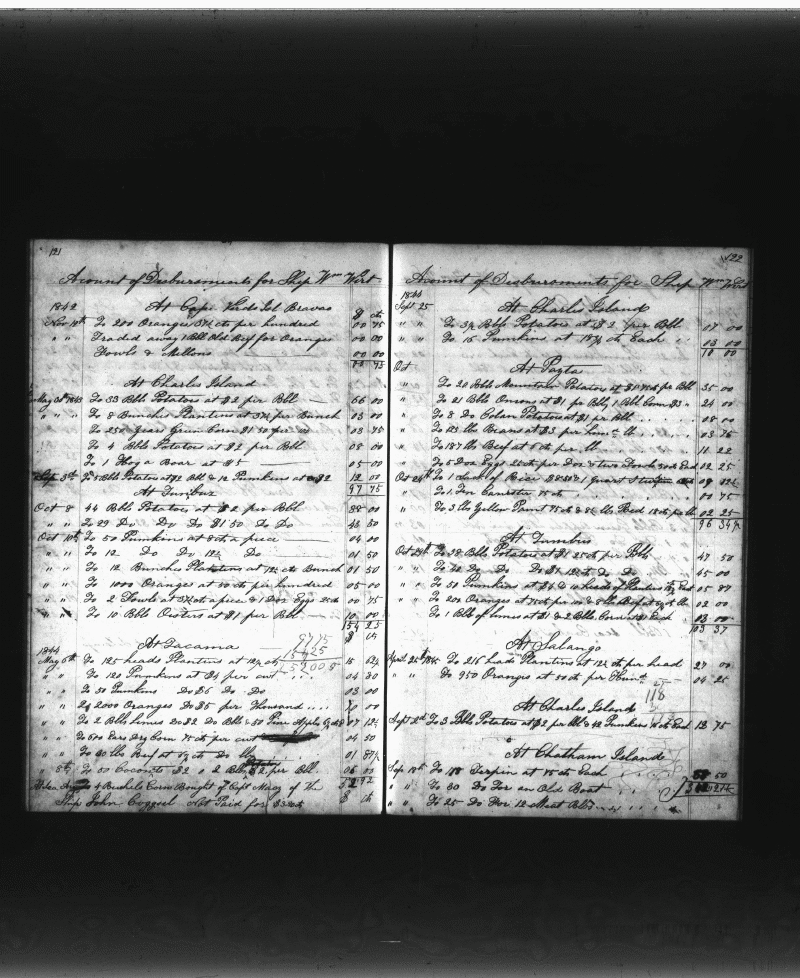 121
Acount of Disbursments for Ship Wm Wirt
1842 At Cape Verds Isl Bravas $ cts
Nov 18th To 200 Oranges 37½ cts per hundred 00 75
" " Traded away 1 Bbl Old Beef for Oranges 00 00
Fowls & Mellons 00 00
00 75
At Charles Island
May 31st 1843 To 33 Bbls Potatoes at $2 per Bbl 66 00
" " " To 8 Bunches Plantins at 37½ per Bunch 03 00
" " To 250 Years Green Corn $1.50 per 03 75
" " To 4 Bbls Potatoes at $2 per Bbl 08 00
" " To 1 Hog a Boar at $5 05 00
Sept 3th To 5 Bbls Potatoes at $2 Bbl & 12 Pumkins at $2 12 00
97 75
At Tumbus
Oct 8 To 44 Bbls Potatoes at $2 per Bbl 88 00
" " To 29 Do Do Do $1.50 Do Do 43 50
Oct 10th To 50 Pumkins at 8 cts a piece 04 00
" " To 12 Do Do 12½ Do 01 50
" " To 12 Bunches Plantins at 12½ cts Bunch 01 50
" " To 1000 Oranges at 50 cts per hundred 05 00
" " To 2 Fowls at 37½ cts a piece & 1 Doz Eggs 25 cts 00 75
" " To 10 Bbls Oisters at $1 per Bbl 10 00
154 25
At Tacama 97 75 $ cts
1844 154 25
May 6th To 125 heads Plantins at 12½ cts 15 62½
" " To 120 Pumkins at $4 per cwt 04 80
" " To 50 Pumkins Do $6 Do Do 03 00
" " To 2000 Oranges Do $5 per Thousand 10 00
" " To 2 Bbls Limes Do $2 Do Bbl & 50 Pine Apples 07 12½
" " To 600 Ears Dry Corn 75 cts per cwt 04 50
" " To 30 lbs Beef at 6¼ cts Do lb 01 87½
" 8th To 50 Coconuts $2 & 2 Bbls $2 per Bbl 06 00
To 4 Bushels Corn Bought of Capt Macy of the
Ship John Coggesh Not Paid for $ cts
122
Acount of Disbursments for Ship Wm Wirt
1844
Sept 25 At Charles Island
" " To 3½ Bbls Potatoes at $2 per Bbl 07 00
" " To 16 Pumkins at 18¾ cts Each 03 00
10 00
Oct At Payta
" " To 20 Bbls Mountain Potatoes at $1.75 cts per Bbl 35 00
" " To 21 Bbls Onions at $1 pr Bbl, 1 Bbl Corn $3 24 00
" " To 8 Do Colan Potatoes at $1 per Bbl 08 00
" " To 125 lbs Beans at $3 per 03 75
" " To 187 lbs Beef at 6 cts per lb 11 22
" " To 5 Doz Eggs 25 cts per Doz & two Fowls 50 cts Each 02 25
Oct 24th
" " To 1 Tea Canester 75 cts 00 75
" " To 3 lbs Yellow Paint 75 cts & lbs Red 18 cts pr lb 02 25
96 34½
At Tumbus
Oct 29th To 38 Bbls Potatoes at $1.25 cts per Bbl 47 50
" " To 30 Do Do Do $1.12½ cts Do Do 45 00
" " To 50 Pumkins at $4 & 10 heads of Plantins Each 05 87
" " To 200 Oranges at 75 cts per 02 00
" " To 1 Bbl of Limes at $1 & 2 Bbls Corn at $1 Each 03 00
103 37
At Salango
April 25th 1845 To 216 heads Plantins at 12½ cts per head 27 00
" " Do 950 Oranges at 50 cts per Hund 04 25
118
At Charles Island
Sept 2d To 3 Bbls Potatoes at $2 per Bbl & 42 Pumkins cts Each 12 75
At Chatham Island
Sep 18th To 118 Terpin at cts Each 50
" " To 30 Do For an Old Boat
" " To 25 Do For 12 Meat Bbls